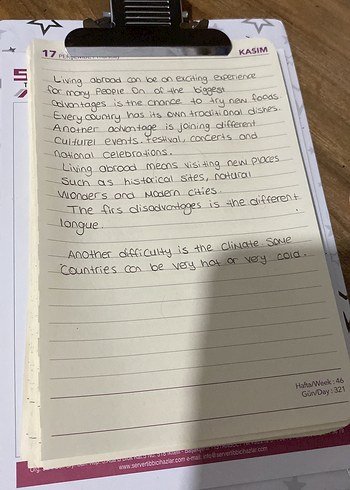 17
KASIM
Living abroad can be an exciting experience
for many people On of the biggest
advantages is the chance to try new foods.
Every country has its own traditional dishes.
Another advantage is joining different
culturel events. festival, concerts and
national celebrations.
Living abroad means visiting new places
Such as historical sites, natural
wonders and modern cities
The firs disadvantages is the different
langue.
Another difficulty is the climate Some
countries can be very hot or very cold.
Hafta/Week : 46
Gün/Day : 321